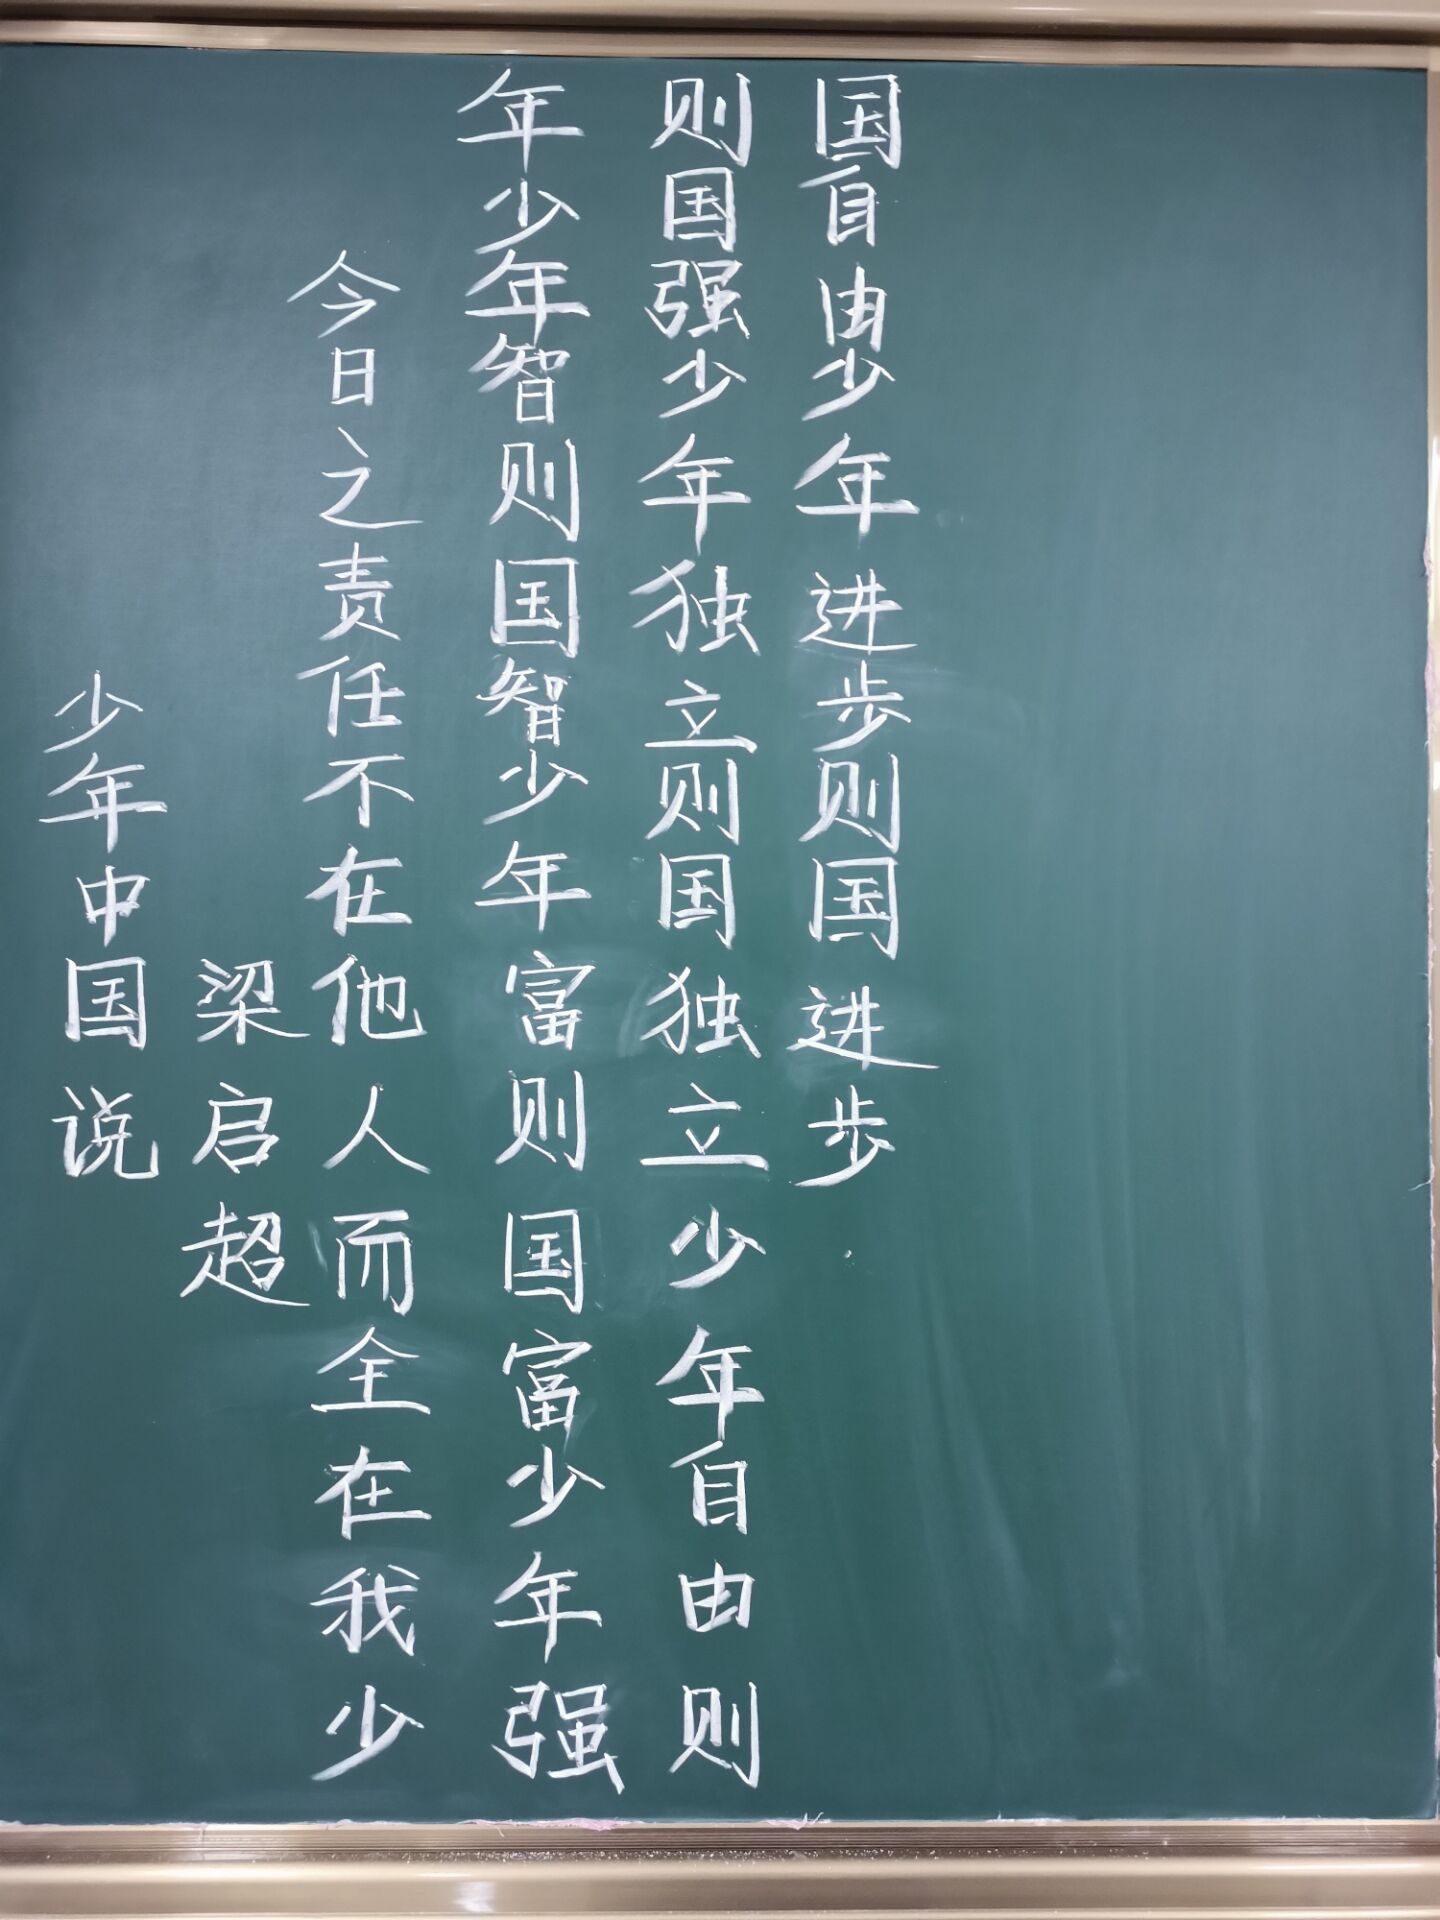 少年中国说
梁启超
今日之责任不在他人而全在我少
年少年智则国智少年富则国富少年强
则国强少年独立则国独立少年自由则
国自由少年进步则国进步